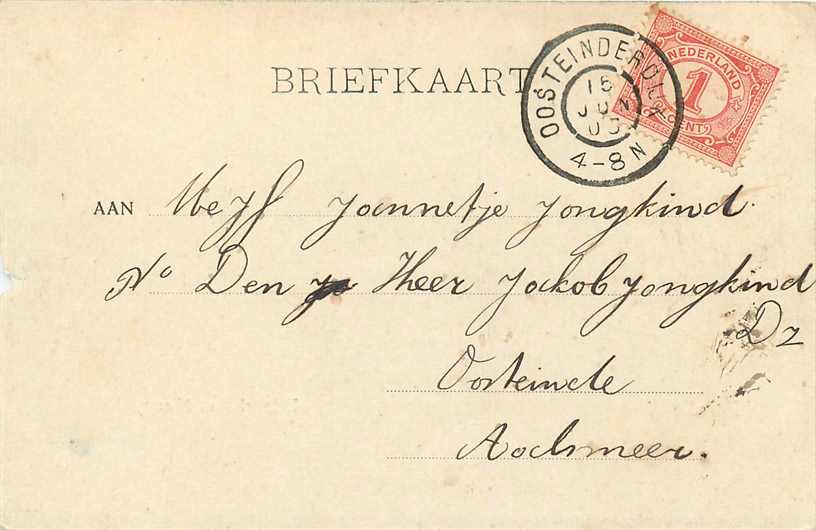 BRIEFKAART
OOSTEINDERDIJK
15
JUN
05
4-8 N
NEDERLAND
1
CENT
AAN Mejf Jannetje Jongkind.
No Den Heer Jackob Jongkind
Dz
Oosteinde
Aodsmeer.